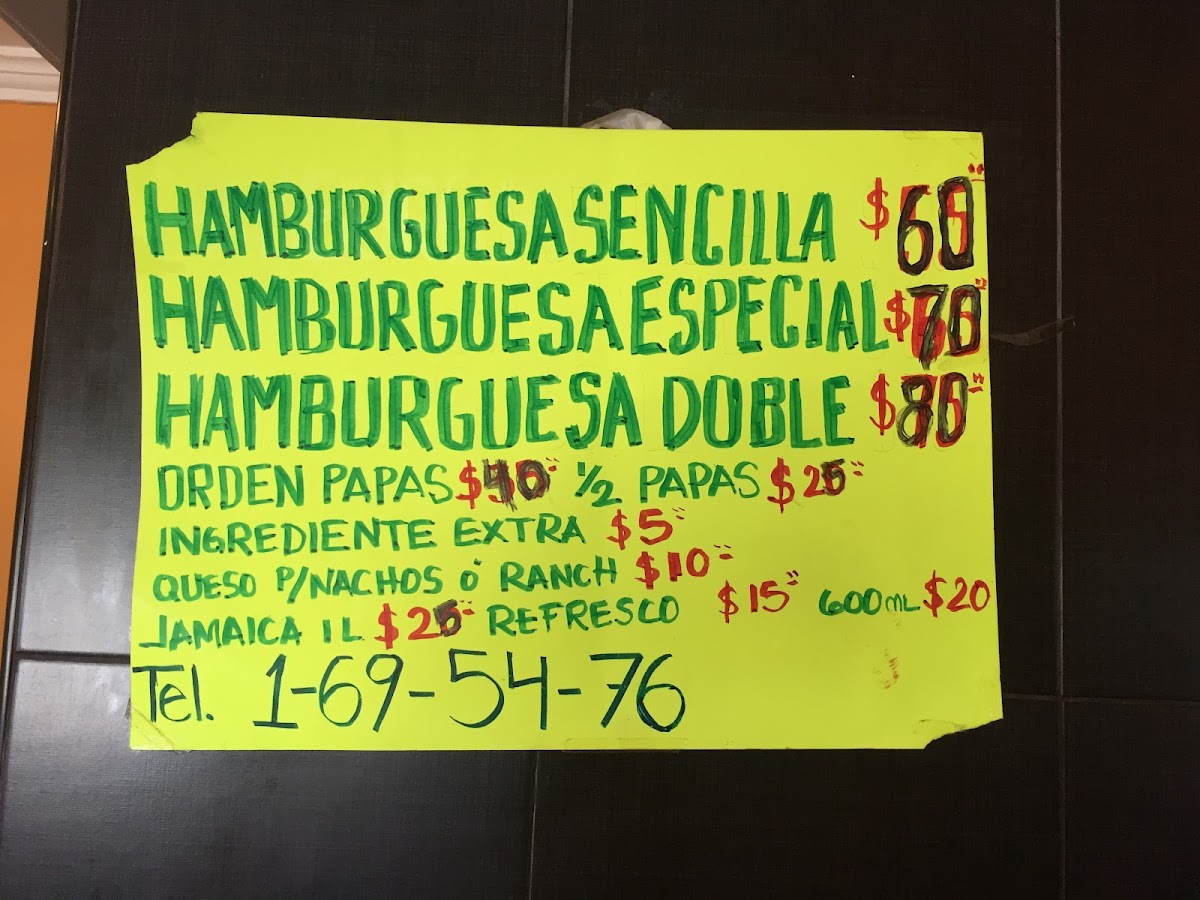 HAMBURGUESA SENCILLA $60
HAMBURGUESA ESPECIAL $70
HAMBURGUESA DOBLE $80
ORDEN PAPAS $40 1/2 PAPAS $25
INGREDIENTE EXTRA $5
QUESO P/NACHOS Ó RANCH $10
JAMAICA 1L $25 REFRESCO $15 600ML $20
Tel. 1-69-54-76